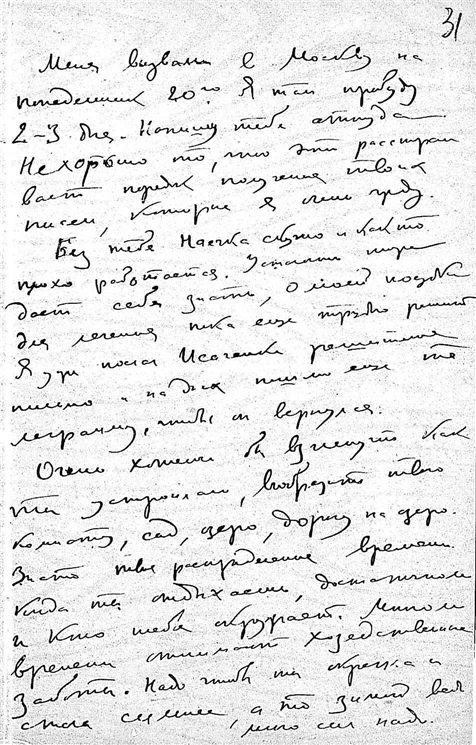 31
Меня вызвали в Москву на
понедельник 20го. Я там пробуду
2-3 дня. Напишу тебе оттуда.
Нехорошо то, что это расстраи
вает порядок получения твоих
писем, которые я очень жду.
Без тебя скучно и как то
плохо работается. Усталость
дает себя знать, о моей поездке
для лечения пока еще трудно решить
Я уже послал Исаченке решительное
письмо и на днях пошлю еще те
леграмму, чтобы он вернулся.
Очень хотел бы взглянуть как
ты устроилась, вообразить твою
комнату, сад, озеро, дорогу на озеро.
Знать твое распределение времени
когда ты отдыхаешь, достаточно ли
и кто тебя окружает. Много ли
времени отнимают хозяйственные
заботы. Надо чтобы ты окрепла и
стала сильнее, а то зимой ведь
много сил надо.